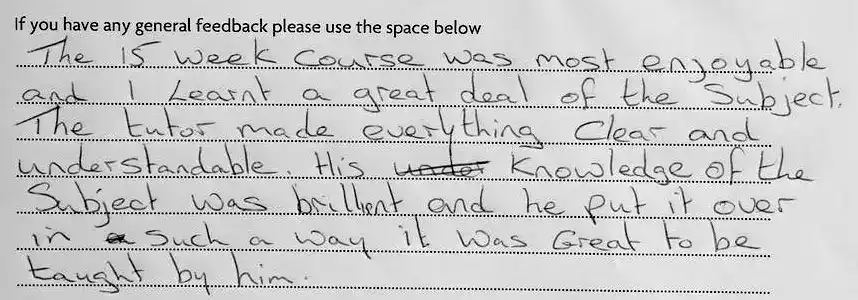 If you have any general feedback please use the space below
The 15 week course was most enjoyable
and I Learnt a great deal of the Subject.
The tutor made everything Clear and
understandable. His under Knowledge of the
Subject was brillient and he put it over
in a Such a way it was Great to be
taught by him.